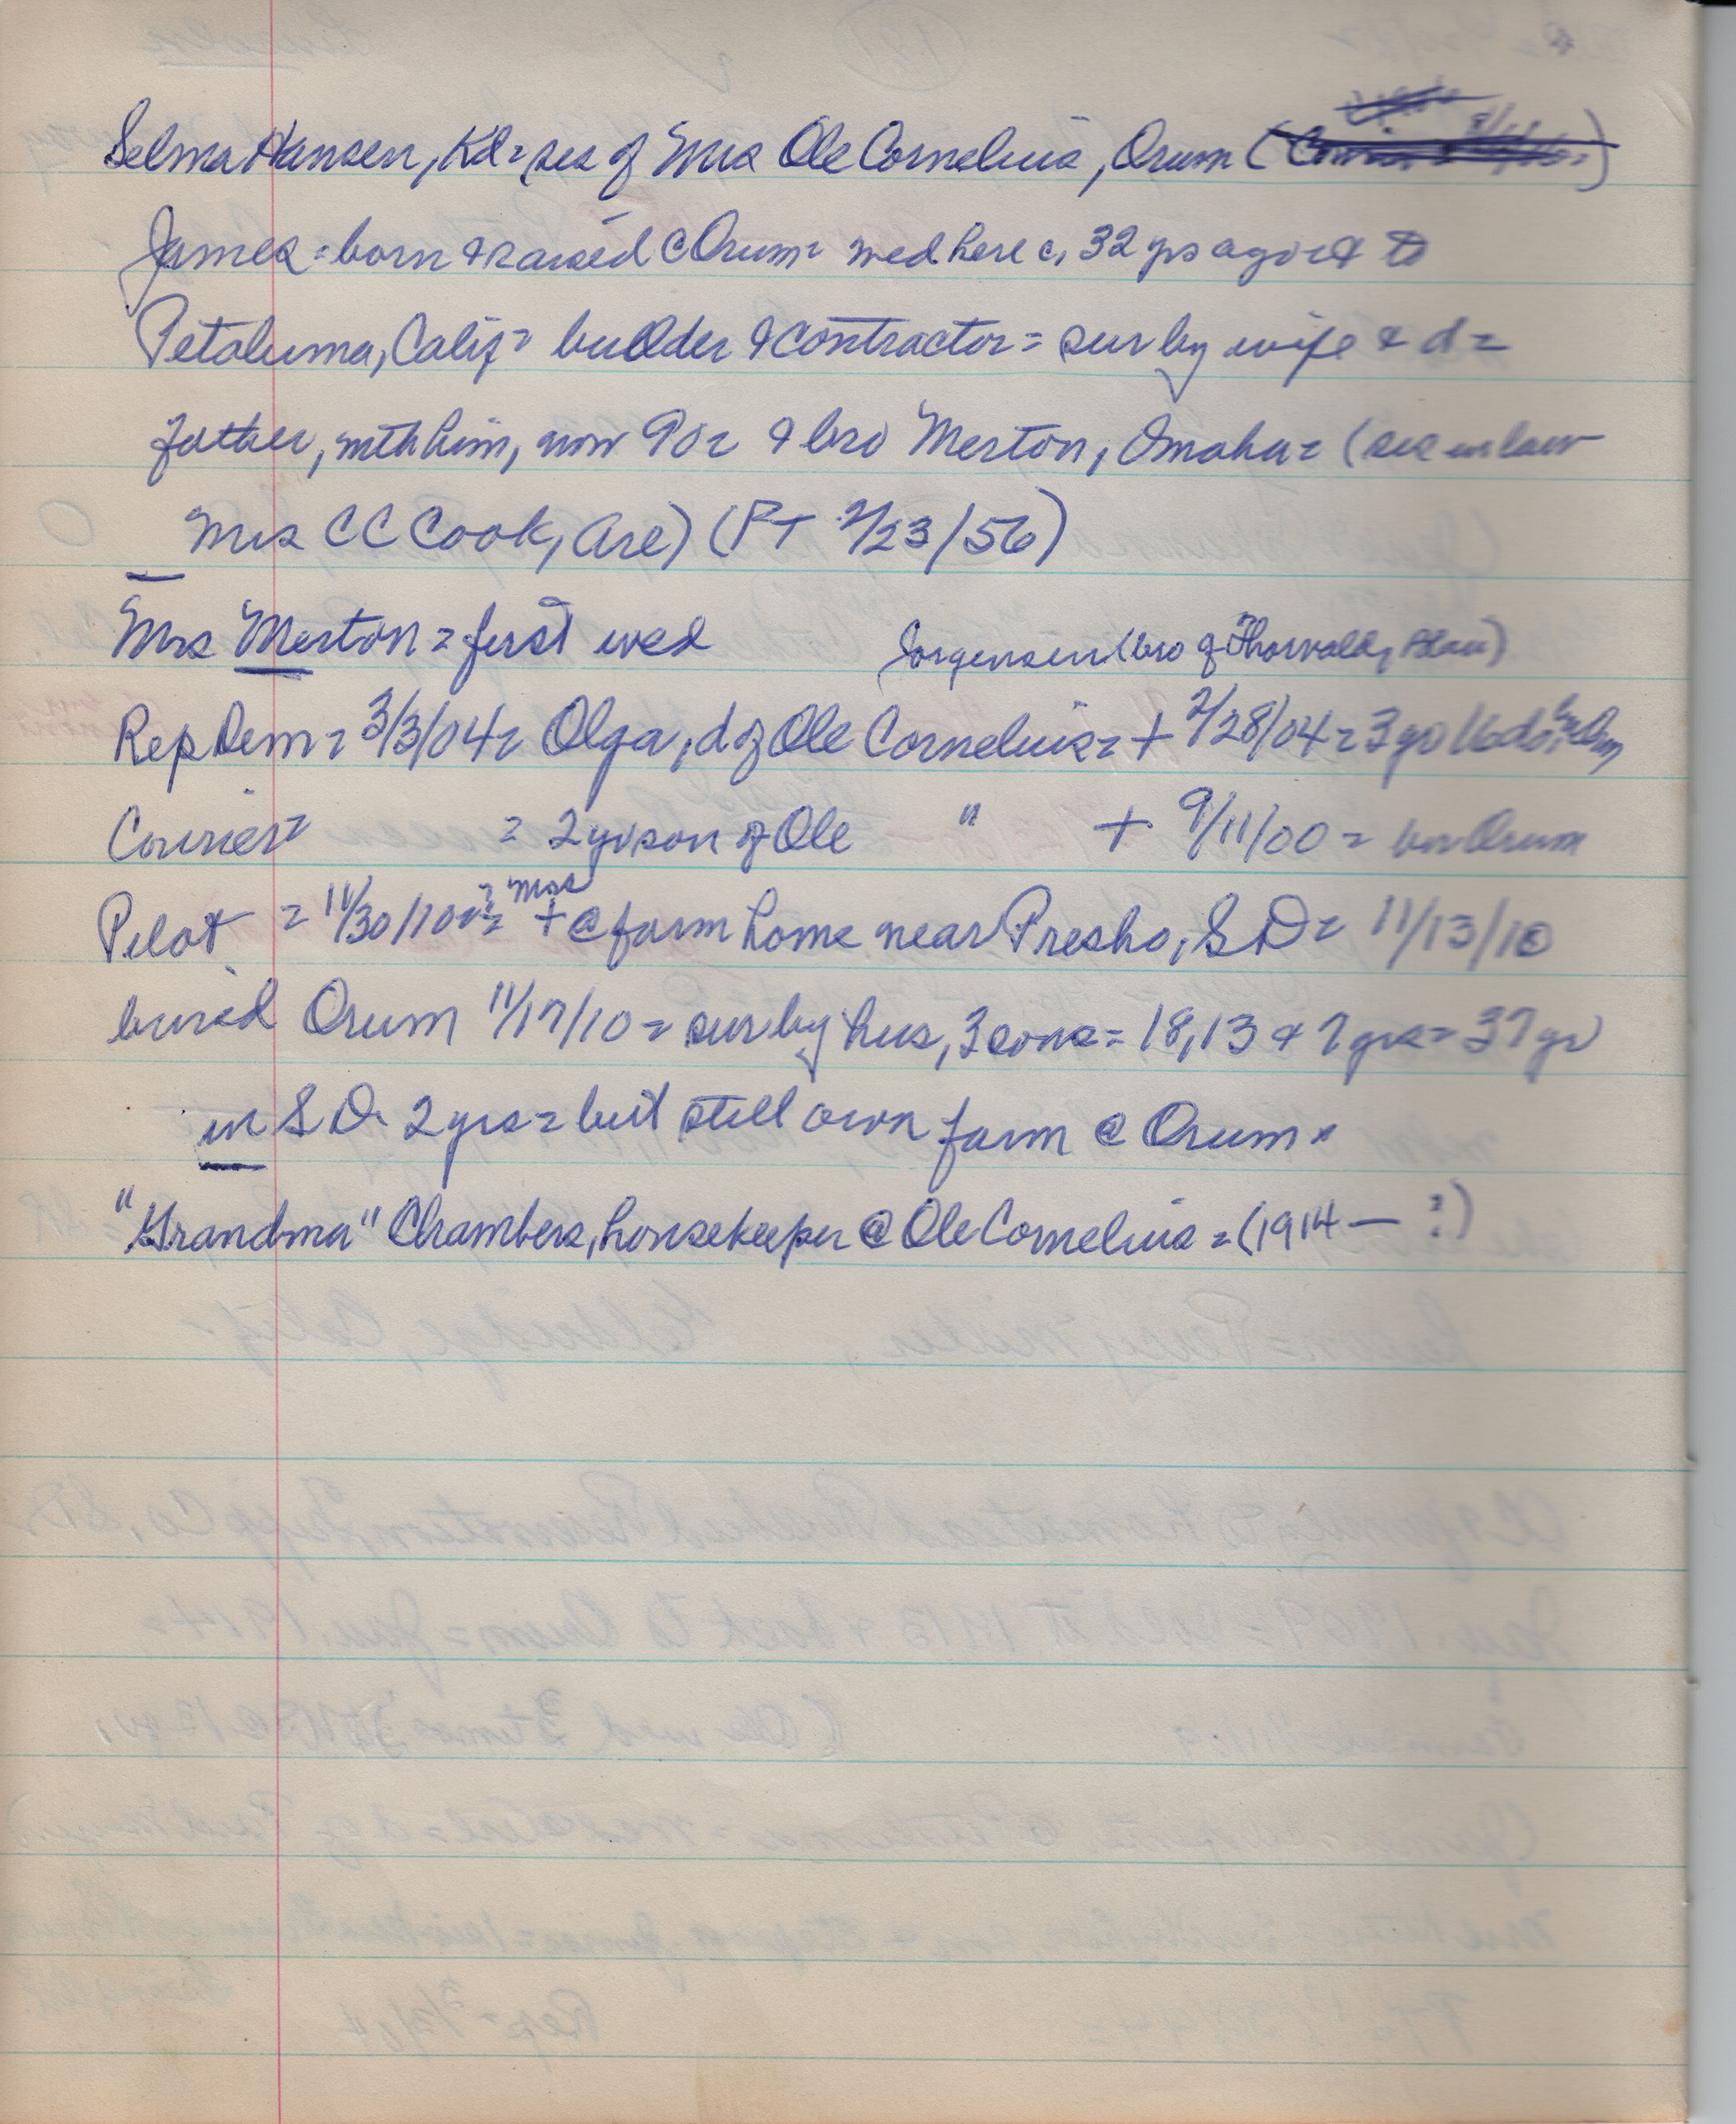 Selma Hansen, Kd = sis of Mrs Ole Cornelius, Orum (
James = born & raised @ Orum = wed here c, 32 yrs ago & to
Petaluma, Calif = builder & contractor = sur by wife & d =
father, with him, now 90 = & bro Merton, Omaha = (sis in law
Mrs CC Cook, Arl) (PT 2/23/56)
Mrs Merton = first wed Jorgensen (bro of Thorvald, )
Rep Dem = 3/3/04 = Olga, d of Ole Cornelius = + 2/28/04 = 3 yr 16 ds = Orum
Courier = = 2 yr son of Ole " + 9/11/00 = bur Orum
Pilot = 11/30/10 = Mrs + @ farm home near Presho, SD = 11/13/10
buried Orum 11/17/10 = sur by hus, 3 sons = 18, 13 & 7 yrs = 37 yr
in S D. 2 yrs = but still own farm @ Orum
"Grandma" Chambers, housekeeper @ Ole Cornelius = (1914 — ?)